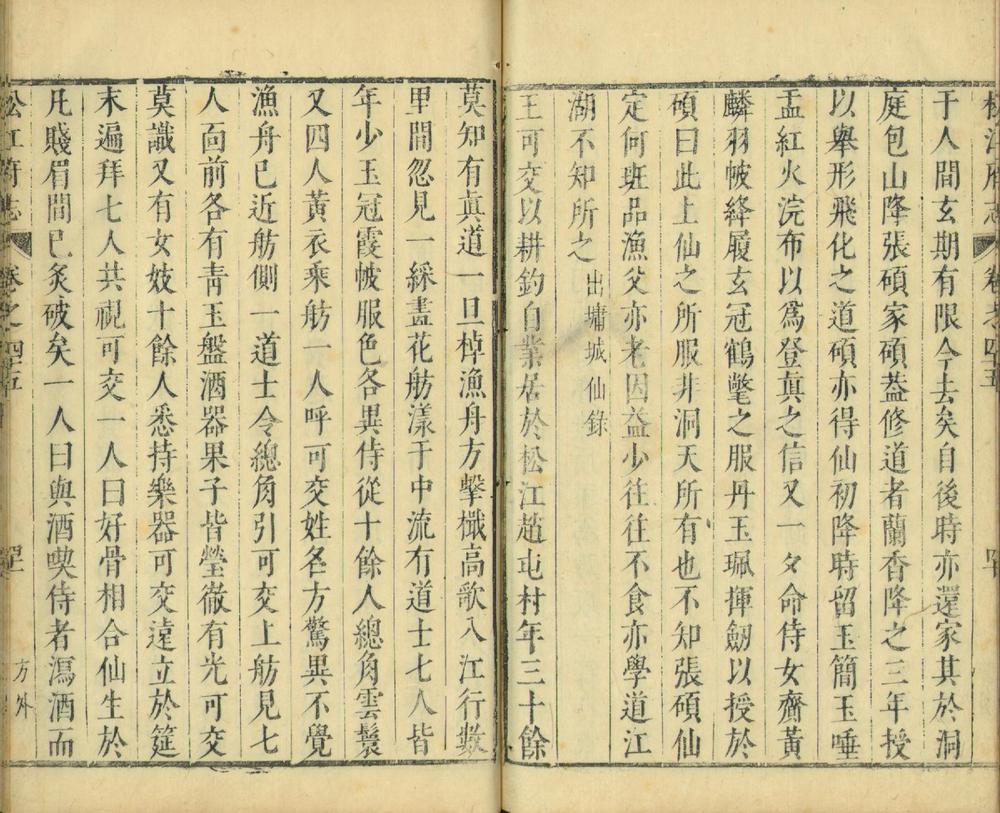 松江府志 卷之四十五
于人間玄期有限今去矣自後時亦還家其於洞
庭包山降張碩家碩葢修道者蘭香降之三年授
以舉形飛化之道碩亦得仙初降時留玉簡玉唾
盂紅火浣布以爲登眞之信又一夕命侍女齎黃
麟羽帔絳履玄冠鶴氅之服丹玉珮揮劒以授於
碩曰此上仙之所服非洞天所有也不知張碩仙
定何班品漁父亦老因益少往往不食亦學道江
湖不知所之 出墉城仙錄
王可交以耕釣自業居於松江趙屯村年三十餘
莫知有眞道一旦棹漁舟方擊檝高歌入江行數
里間忽見一綵畫花舫漾于中流有道士七人皆
年少玉冠霞帔服色各異侍從十餘人總角雲鬟
又四人黃衣乘舫一人呼可交姓名方驚異不覺
漁舟已近舫側一道士令總角引可交上舫見七
人面前各有靑玉盤酒器果子皆瑩徹有光可交
莫識又有女妓十餘人悉持樂器可交遠立於筵
末遍拜七人共視可交一人曰好骨相合仙生於
凡賤眉間已炙破矣一人曰與酒喫侍者瀉酒而
松江府志 卷之四十五 方外